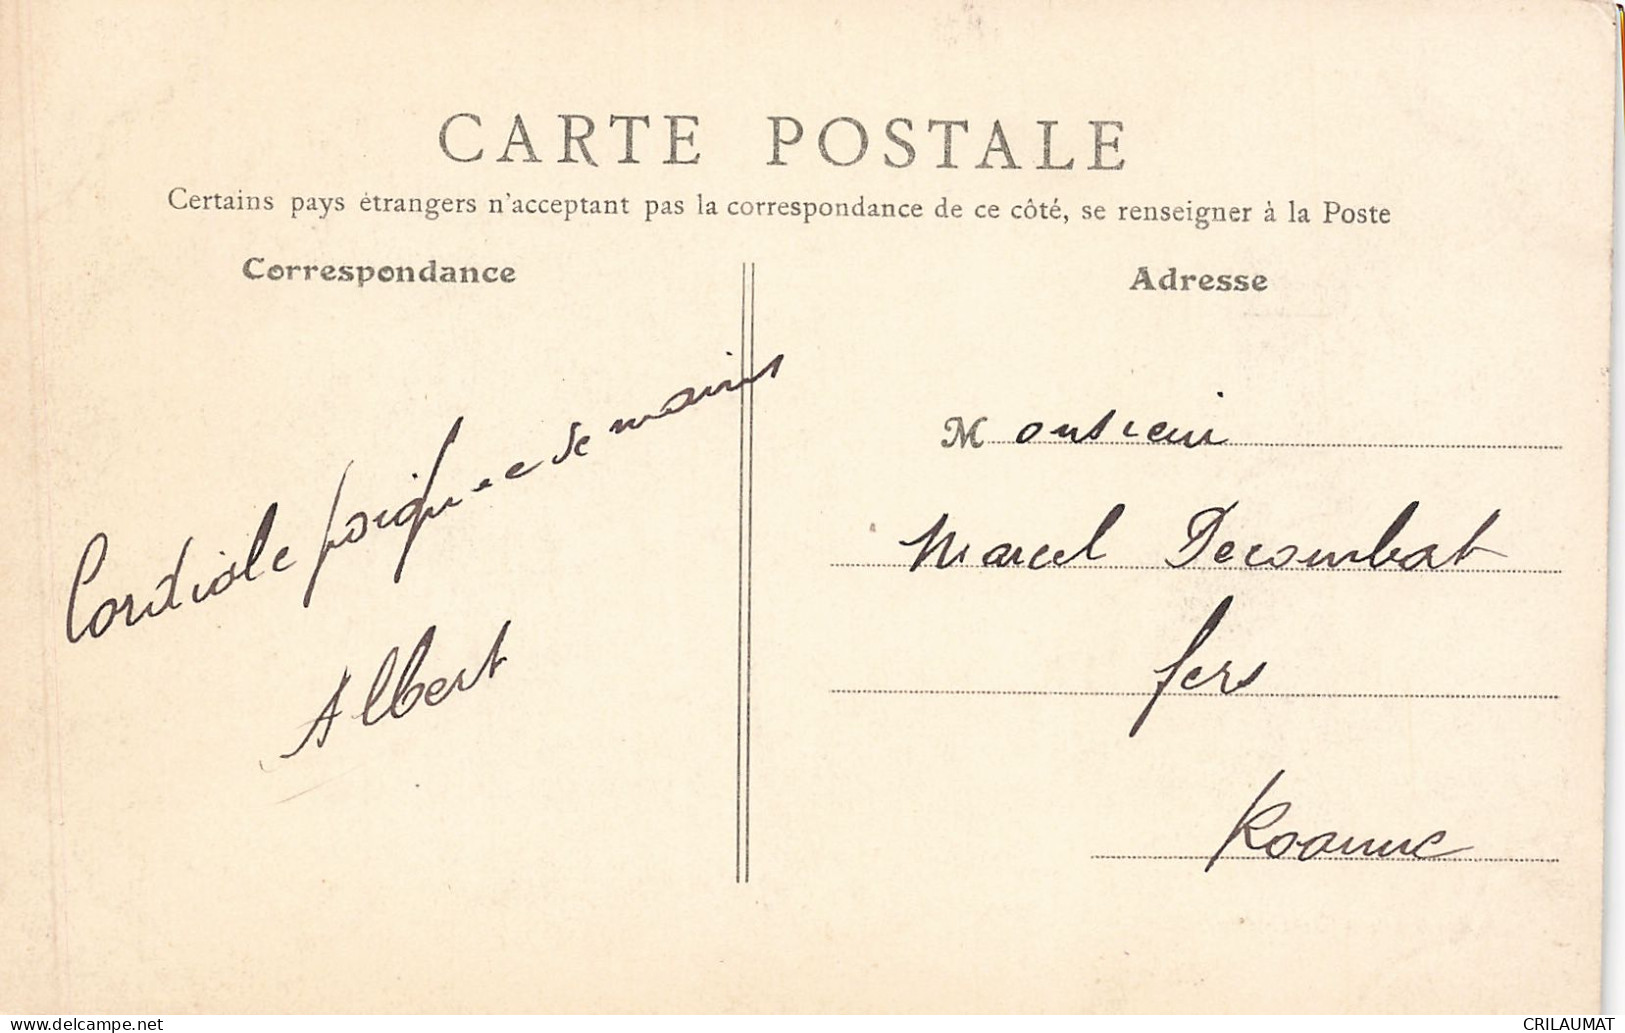 CARTE POSTALE
Certains pays étrangers n'acceptant pas la correspondance de ce côté, se renseigner à la Poste
Correspondance
Cordiale poignee de mains
Albert
Adresse
Monsieur
Marcel Decombat
fers
Roanne
www.delcampe.net
CRILAUMAT